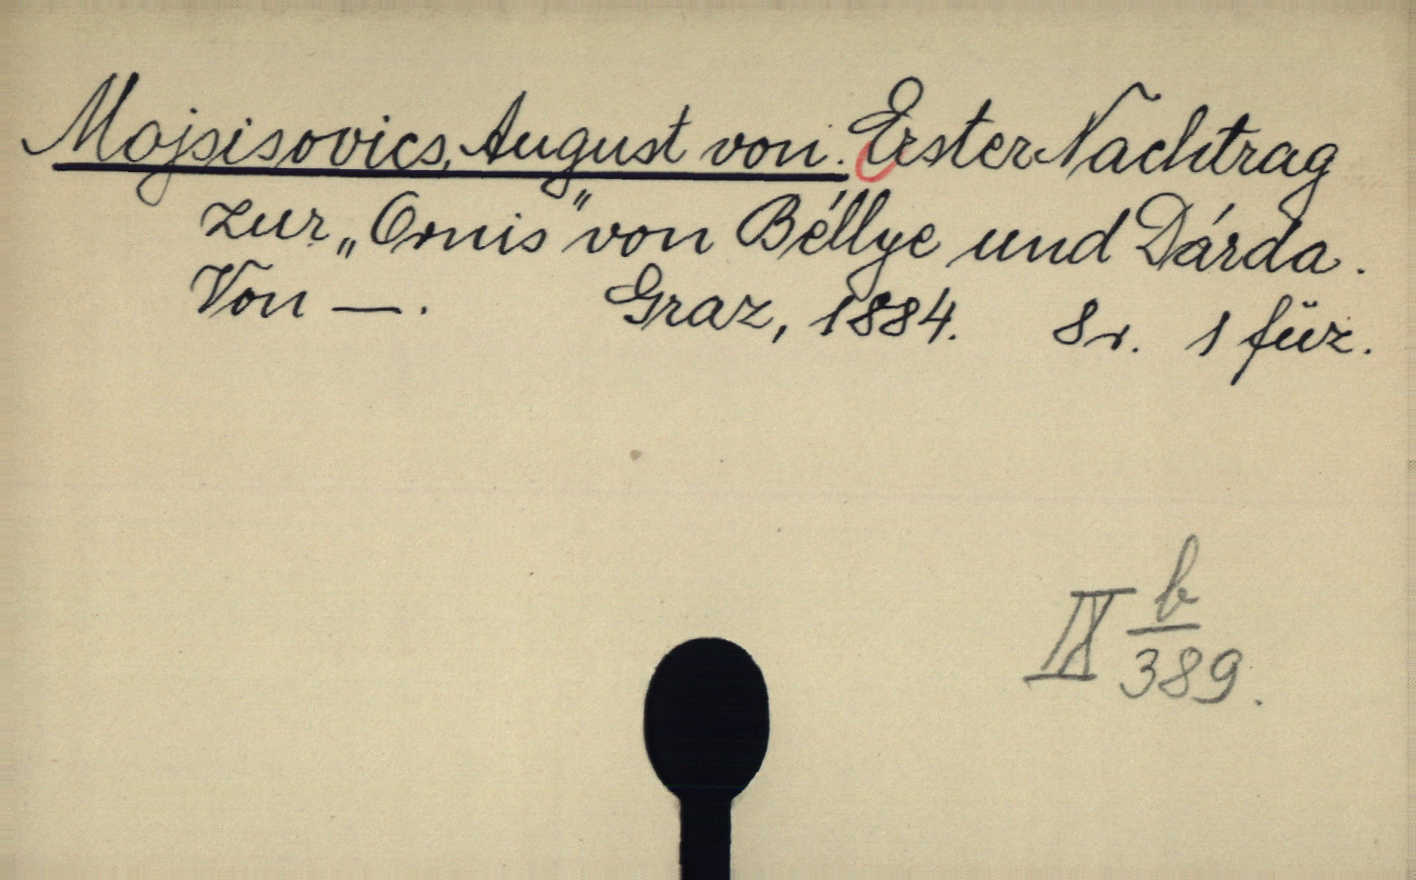 Mojsisovics, August von. Erster Nachtrag
zur „Ornis” von Béllye und Dárda.
Von —. Graz, 1884. 8r. 1 füz.
IX b/389.